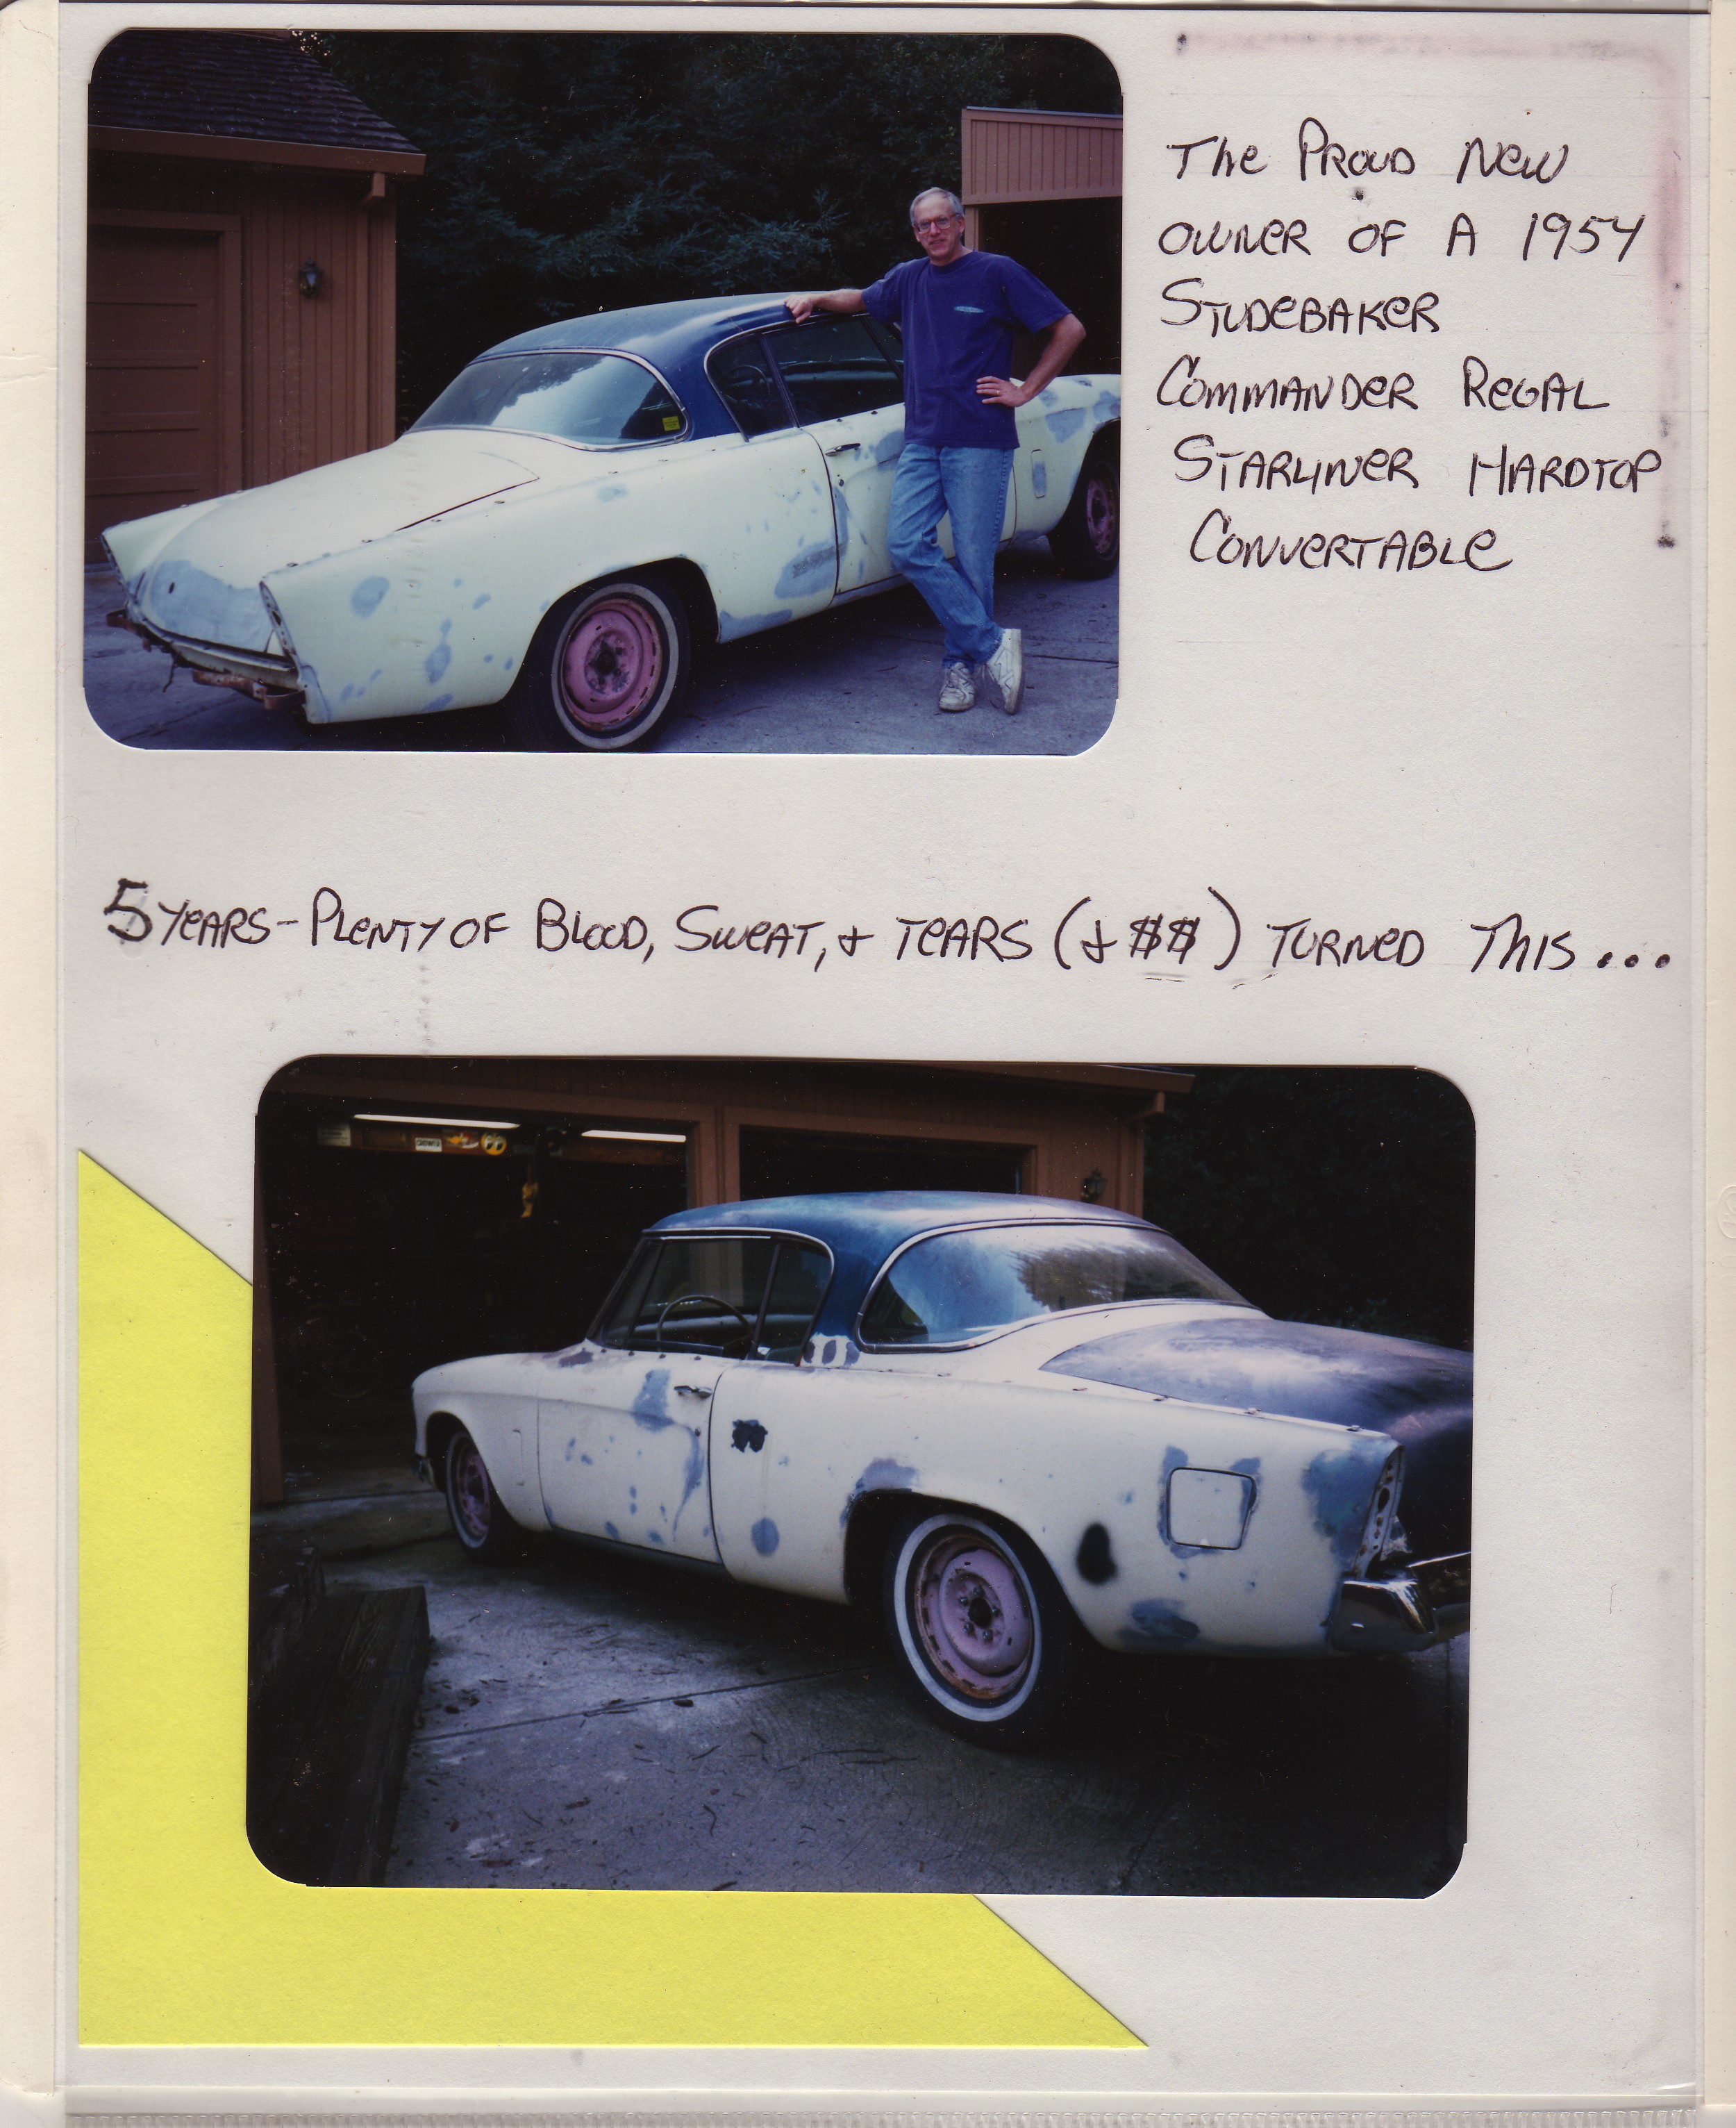 The Proud New
owner of a 1954
Studebaker
Commander Regal
Starliner Hardtop
Convertable
5 years - Plenty of Blood, Sweat, & tears (& $$) turned this...